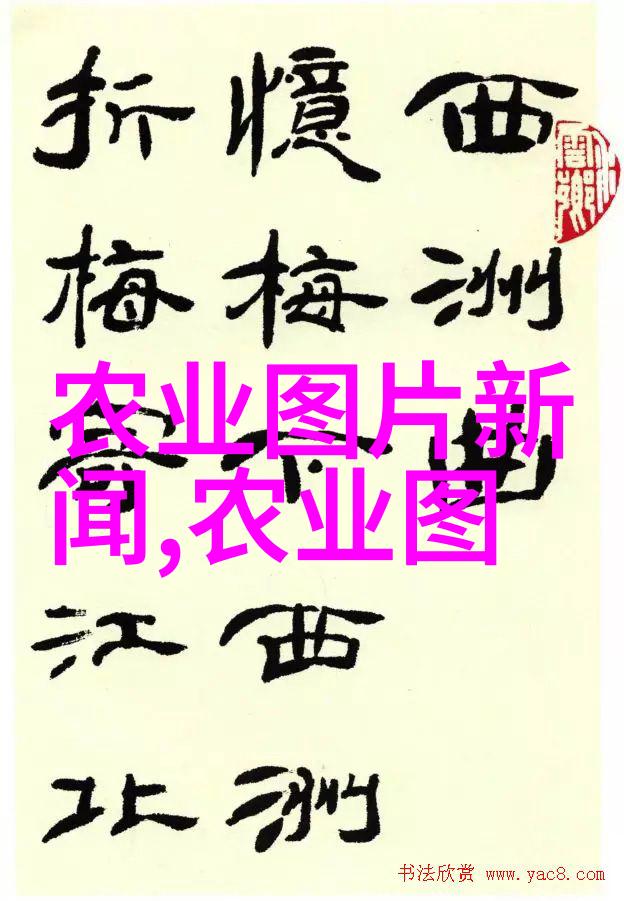 西洲曲
憶梅下西洲
折梅寄江北
农业图片新
闻,农业图
书法欣赏 www.yac8.com